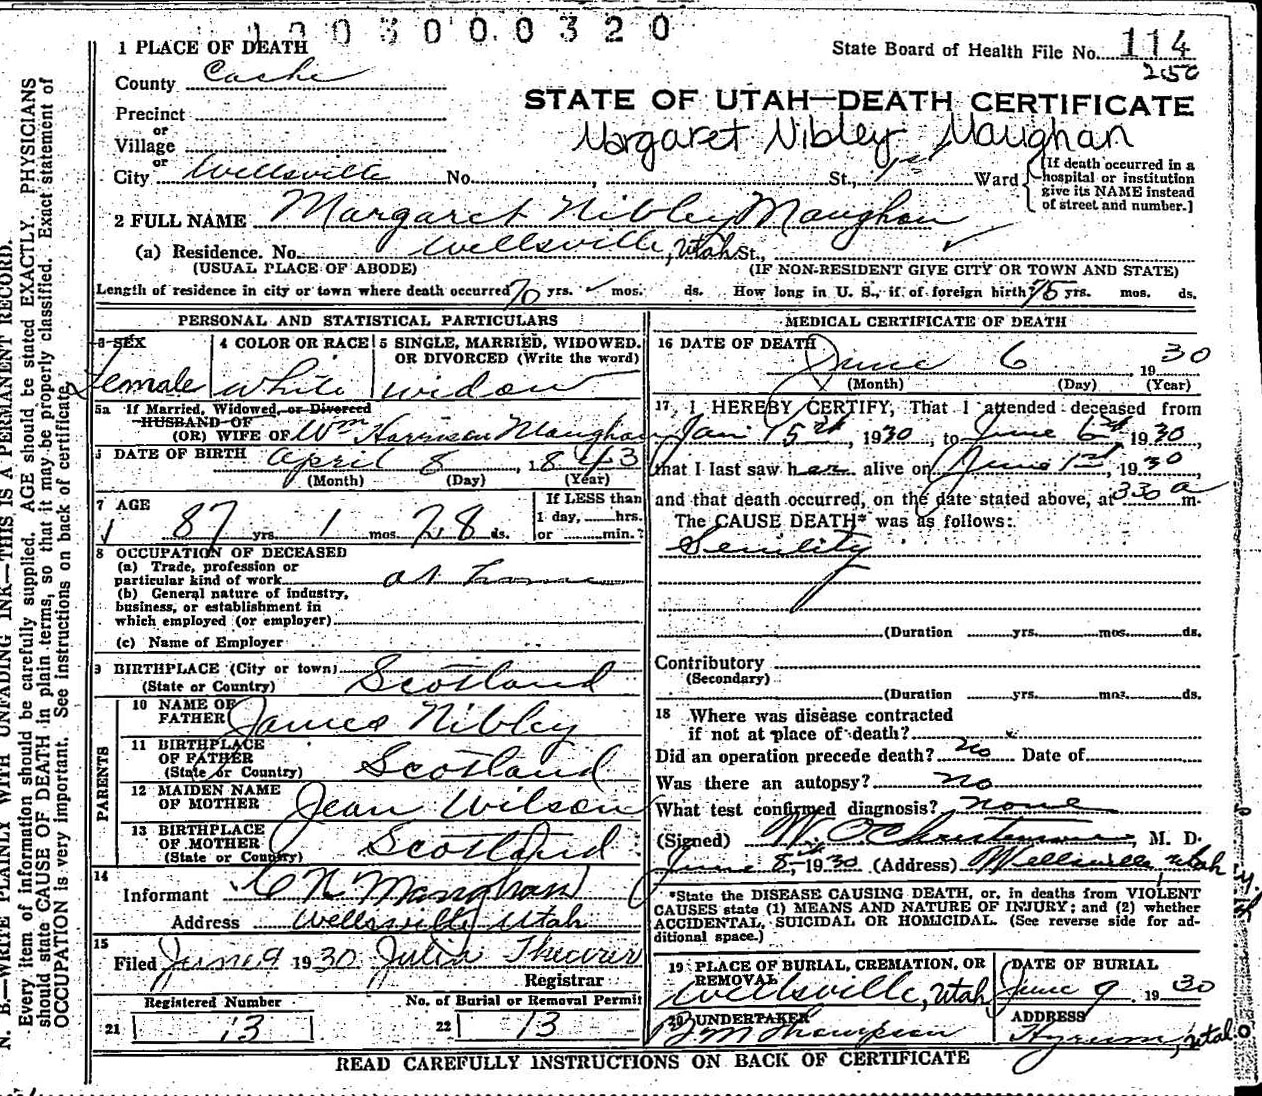 1003000320
1 PLACE OF DEATH
State Board of Health File No. 114
250
County Cache
STATE OF UTAH—DEATH CERTIFICATE
Precinct
or
Village
Margaret Nibley Maughan
or
City Wellsville No. , St., 1st Ward
[If death occurred in a
hospital or institution
give its NAME instead
of street and number.]
2 FULL NAME Margaret Nibley Maughan
(a) Residence. No. Wellsville, Utah St.,
(USUAL PLACE OF ABODE) (IF NON-RESIDENT GIVE CITY OR TOWN AND STATE)
Length of residence in city or town where death occurred 70 yrs. mos. ds. How long in U. S., if of foreign birth? 75 yrs. mos. ds.
PERSONAL AND STATISTICAL PARTICULARS
3 SEX
Female
4 COLOR OR RACE
white
5 SINGLE, MARRIED, WIDOWED.
OR DIVORCED (Write the word)
widow
5a If Married, Widowed, or Divorced
HUSBAND OF
(OR) WIFE OF Wm Harrison Maughan
DATE OF BIRTH April 8, 1843
(Month) (Day) (Year)
7 AGE
87 yrs. 1 mos. 28 ds.
If LESS than
1 day, hrs.
or min.?
8 OCCUPATION OF DECEASED
(a) Trade, profession or
particular kind of work at home
(b) General nature of industry,
business, or establishment in
which employed (or employer)
(c) Name of Employer
9 BIRTHPLACE (City or town)
(State or Country) Scotland
PARENTS
10 NAME OF
FATHER James Nibley
11 BIRTHPLACE
OF FATHER
(State or Country) Scotland
12 MAIDEN NAME
OF MOTHER Jean Wilson
13 BIRTHPLACE
OF MOTHER
(State or Country) Scotland
14
Informant C N Maughan
Address Wellsville Utah
15
Filed June 9 1930 Julia Theurer
Registrar
Registered Number
21 13
No. of Burial or Removal Permit
22 13
MEDICAL CERTIFICATE OF DEATH
16 DATE OF DEATH
June 6 1930
(Month) (Day) (Year)
17 I HEREBY CERTIFY, That I attended deceased from
Jan 15th, 1930, to June 6th, 1930,
that I last saw her alive on June 1st, 1930,
and that death occurred, on the date stated above, at 330 a m.
The CAUSE DEATH* was as follows:
Senility
(Duration yrs. mos. ds.
Contributory
(Secondary)
(Duration yrs. mos. ds.
18 Where was disease contracted
if not at place of death?
Did an operation precede death? no Date of
Was there an autopsy? no
What test confirmed diagnosis? none
(Signed) W. O. Christensen, M. D.
June 8, 1930 (Address) Wellsville, Utah
*State the DISEASE CAUSING DEATH, or, in deaths from VIOLENT
CAUSES state (1) MEANS AND NATURE OF INJURY; and (2) whether
ACCIDENTAL, SUICIDAL OR HOMICIDAL. (See reverse side for ad-
ditional space.)
19 PLACE OF BURIAL, CREMATION, OR
REMOVAL
Wellsville, Utah
DATE OF BURIAL
June 9 1930
20 UNDERTAKER
B M Thompson
ADDRESS
Hyrum, Utah
READ CAREFULLY INSTRUCTIONS ON BACK OF CERTIFICATE
N. B.—WRITE PLAINLY WITH UNFADING INK—THIS IS A PERMANENT RECORD.
Every item of information should be carefully supplied. AGE should be stated EXACTLY. PHYSICIANS
should state CAUSE OF DEATH in plain terms, so that it may be properly classified. Exact statement of
OCCUPATION is very important. See instructions on back of certificate.